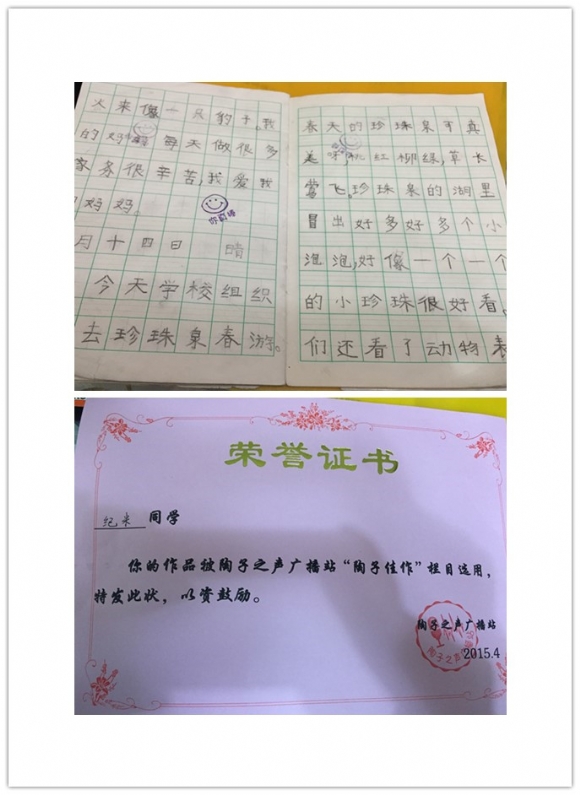 火来像一只的子，我
的好 每天做很多
家务很辛苦，我爱我
妈妈。
月十四日 晴
今天学校组织
去珍珠泉春游。
春天的珍珠泉可真
美 桃红柳绿，草长
莺飞。珍珠泉的湖里
冒出好多好多个小
泡泡，好像一个一个
的小珍珠很好看。
们还看了动物表
荣誉证书
纪来 同学
你的作品被陶子之声广播站“陶子佳作”栏目选用，
特发此状，以资鼓励。
陶子之声广播站
2015.4
陶子之声广播站